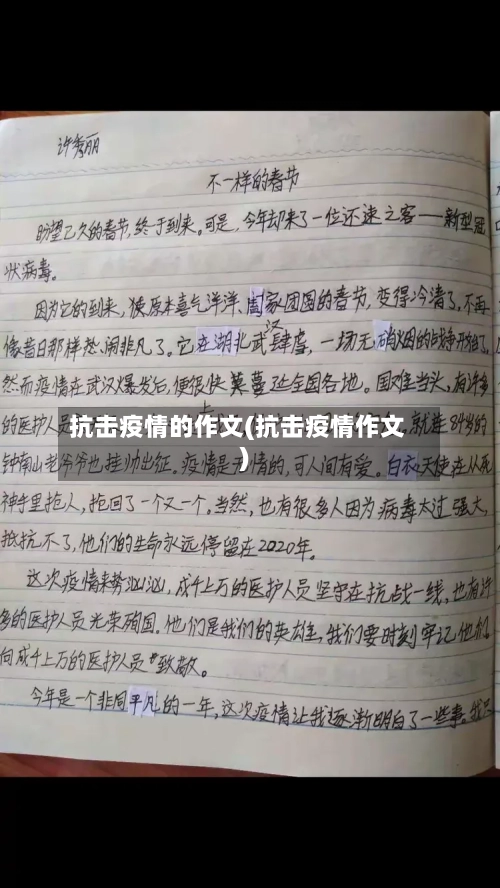 许秀丽
不一样的春节
盼望已久的春节,终于到来。可是,今年却来了一位不速之客——新型冠
状病毒。
因为它的到来,使原本喜气洋洋、阖家团圆的春节,变得冷清了,不再
像昔日那样热闹非凡了。它在湖北武汉肆虐,一场无硝烟的战争开始了。
然而疫情在武汉爆发后,便很快蔓延全国各地。国难当头,有许多
的医护人员
就连84岁的
抗击疫情的作文(抗击疫情作文
)
钟南山老爷爷也挂帅出征。疫情是无情的,可人间有爱。白衣天使在从死
神手里抢人,抢回了一个又一个。当然,也有很多人因为病毒太过强大,
抵抗不了,他们的生命永远停留在2020年。
这次疫情来势汹汹,成千上万的医护人员坚守在抗战一线,也有许
多的医护人员光荣殉国。他们是我们的英雄,我们要时刻牢记他们,
向成千上万的医护人员致敬。
今年是一个非同平凡的一年,这次疫情让我逐渐明白了一些事。我